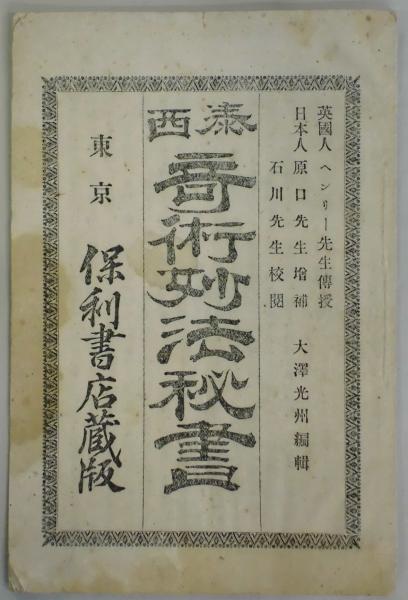 英國人 ヘンリー先生傳授
日本人 原口先生增補 大澤光州編輯
石川先生校閲
泰西
奇術妙法秘書
東京
保利書店蔵版